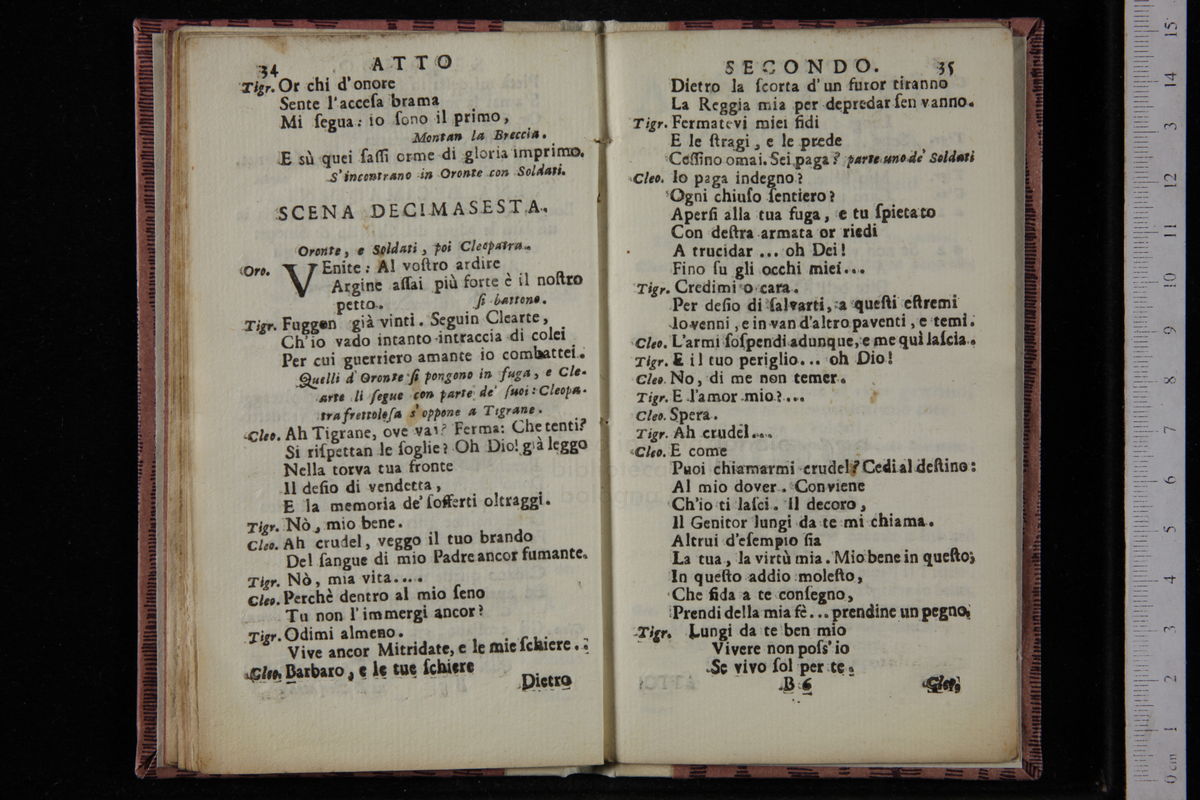 34 ATTO
Tigr. Or chi d'onore
Sente l'acceſa brama
Mi ſegua: io ſono il primo,
Montan la Breccia.
E sù quei ſaſſi orme di gloria imprimo.
S'incontrano in Oronte con Soldati.
SCENA DECIMASESTA.
Oronte, e Soldati, poi Cleopatra.
Oro. VEnite: Al voſtro ardire
Argine aſſai più forte è il noſtro
petto. ſi battono.
Tigr. Fuggon già vinti. Seguin Clearte,
Ch'io vado intanto intraccia di colei
Per cui guerriero amante io combattei.
Quelli d'Oronte ſi pongono in fuga, e Cle-
arte li ſegue con parte de' ſuoi: Cleopa-
tra frettoloſa s'oppone a Tigrane.
Cleo. Ah Tigrane, ove vai? Ferma: Che tenti?
Si riſpettan le ſoglie? Oh Dio! già leggo
Nella torva tua fronte
Il deſio di vendetta,
E la memoria de' ſofferti oltraggi.
Tigr. Nò, mio bene.
Cleo. Ah crudel, veggo il tuo brando
Del ſangue di mio Padre ancor fumante.
Tigr. Nò, mia vita....
Cleo. Perchè dentro al mio ſeno
Tu non l'immergi ancor?
Tigr. Odimi almeno.
Vive ancor Mitridate, e le mie ſchiere..
Cleo. Barbaro, e le tue ſchiere
Dietro
SECONDO. 35
Dietro la ſcorta d'un furor tiranno
La Reggia mia per depredar ſen vanno.
Tigr. Fermatevi miei fidi
E le ſtragi, e le prede
Ceſſino omai. Sei paga? parte uno de' Soldati
Cleo. Io paga indegno?
Ogni chiuſo ſentiero?
Aperſi alla tua fuga, e tu ſpietato
Con deſtra armata or riedi
A trucidar ... oh Dei!
Fino ſu gli occhi miei...
Tigr. Credimi o cara.
Per deſio di ſalvarti, a queſti eſtremi
Io venni, e in van d'altro paventi, e temi.
Cleo. L'armi ſoſpendi adunque, e me quì laſcia.
Tigr. E il tuo periglio... oh Dio!
Cleo. No, di me non temer.
Tigr. E l'amor mio?...
Cleo. Spera.
Tigr. Ah crudel....
Cleo. E come
Puoi chiamarmi crudel? Cedi al deſtino:
Al mio dover. Conviene
Ch'io ti laſci. Il decoro,
Il Genitor lungi da te mi chiama.
Altrui d'eſempio ſia
La tua, la virtù mia. Mio bene in queſto,
In queſto addio moleſto,
Che fida a te conſegno,
Prendi della mia fè... prendine un pegno.
Tigr. Lungi da te ben mio
Vivere non poſs'io
Se vivo ſol per te.
B 6 Cleo.
0 cm 1 2 3 4 5 6 7 8 9 10 11 12 13 14 15